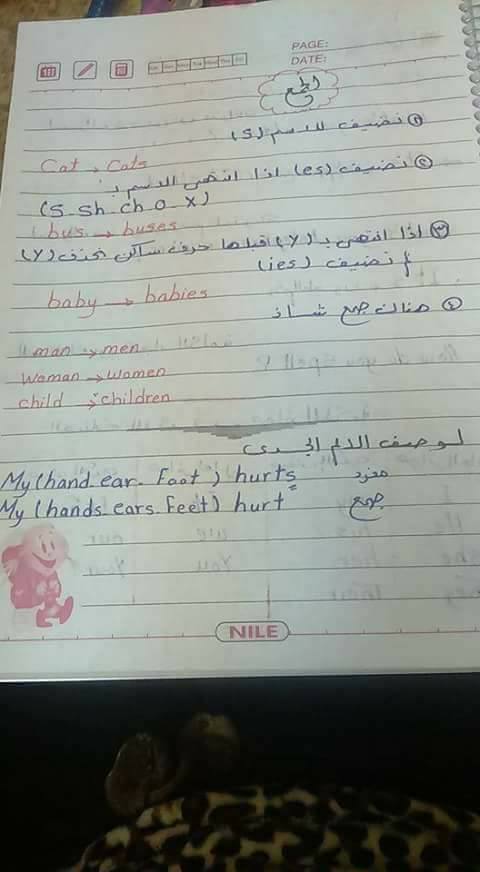 PAGE:
DATE:
الجمع
① نضيف للاسم (s)
Cat → Cats
② نضيف (es) اذا انتهى الاسم بـ
(s_sh_ch_o_x)
bus → buses
③ اذا انتهى بـ (y) قبلها حرف ساكن نحذف (y)
نضيف (ies)
baby → babies
④ هناك جمع شاذ
man → men
woman → women
child → children
لوصف الالم الجسدى
My (hand. ear. Foot) hurts مفرد
My (hands. ears. Feet) hurt جمع
NILE